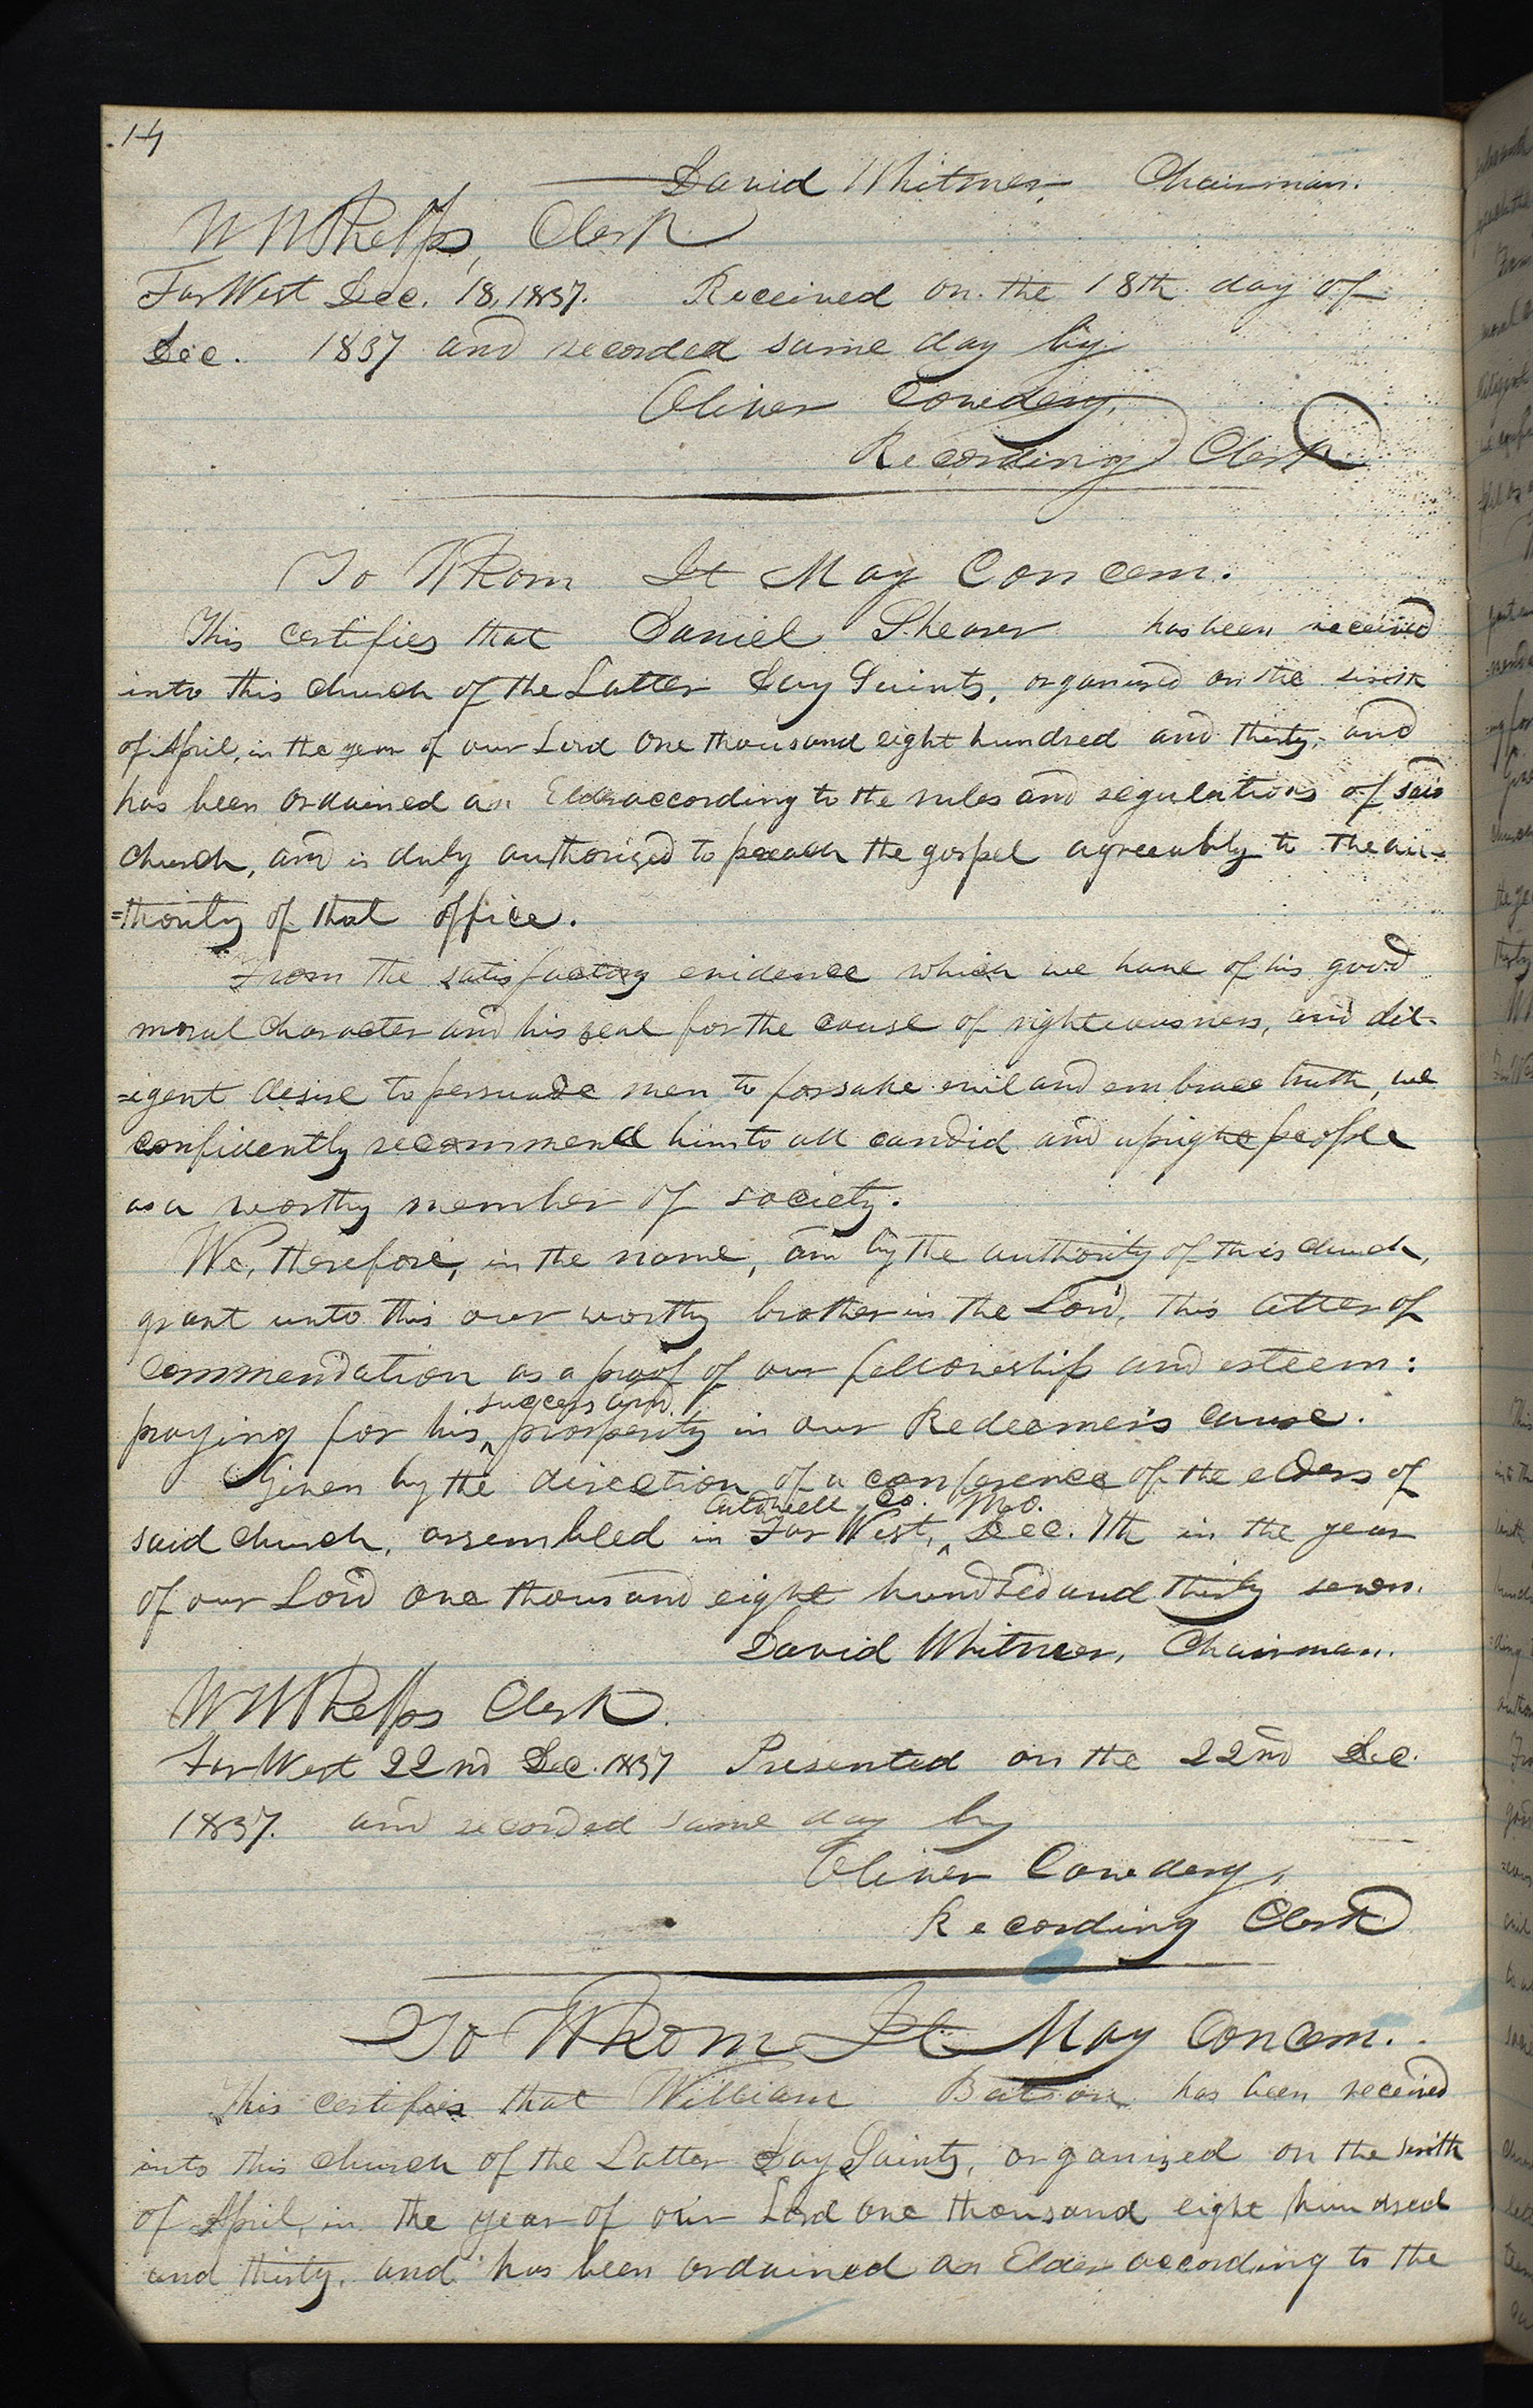 14
David Whitmer, Chairman.
W W Phelps, Clerk
Far West Dec. 18, 1837. Received on the 18th day of
Dec. 1837 and recorded same day by
Oliver Cowdery,
Recording Clerk
To Whom It May Concern.
This certifies that Daniel Shearer has been received
into this church of the Latter Day Saints, organized on the sixth
of April, in the year of our Lord One thousand eight hundred and thirty, and
has been ordained an Elder according to the rules and regulations of said
church, and is duly authorized to preach the gospel agreeably to the au-
=thority of that office.
From the satisfactory evidence which we have of his good
moral character and his zeal for the cause of righteousness, and dil-
=igent desire to persuade men to forsake evil and embrace truth, we
confidently recommend him to all candid and upright people
as a worthy member of society.
We, therefore, in the name, and by the authority of this church,
grant unto this our worthy brother in the Lord, this letter of
commendation as a proof of our fellowship and esteem:
success and
praying for his ‸ prosperity in our Redeemer's cause.
Given by the direction of a conference of the elders of
Caldwell Co. Mo.
said church, assembled in Far West, ‸ Dec. 7th in the year
of our Lord one thousand eight hundred and thirty seven.
David Whitmer, Chairman.
W W Phelps Clerk.
Far West 22nd Dec. 1837 Presented on the 22nd Dec.
1837. and recorded same day by
Oliver Cowdery,
Recording Clerk
To Whom It May Concern.
This certifies that William Batson has been received
into this church of the Latter Day Saints, organized on the sixth
of April, in the year of our Lord one thousand eight hundred
and thirty, and has been ordained an Elder according to the